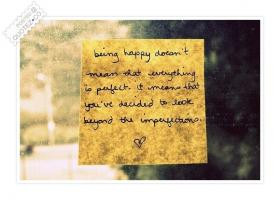 being happy doesn't
mean that everything
is perfect. it means that
you've decided to look
beyond the imperfections.